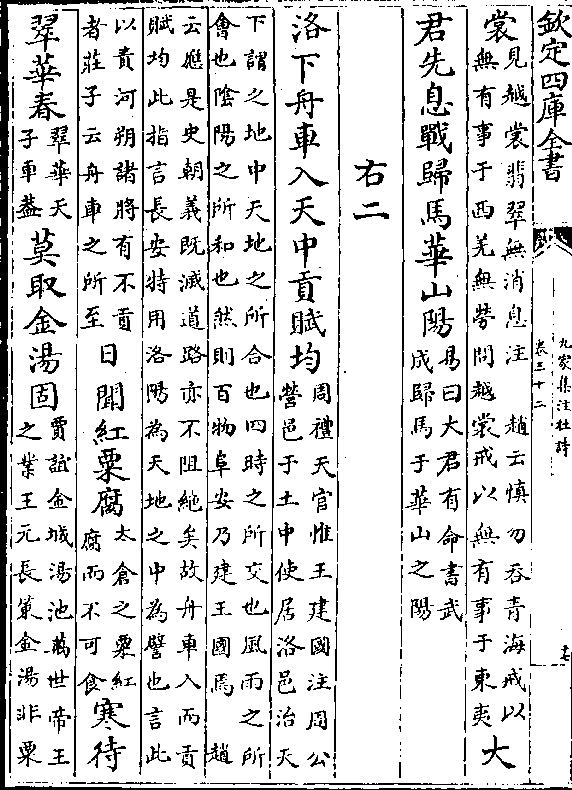 欽定四庫全書
九家集注杜詩
卷三十二
裳見越裳翡翠無消息注　趙云慎勿吞青海戒以
無有事于西羌無勞問越裳戒以無有事于東夷大
君先息戰歸馬華山陽易曰大君有命書武
成歸馬于華山之陽
右二
洛下舟車入天中貢賦均周禮天官惟王建國注周公
營邑于土中使居洛邑治天
下謂之地中天地之所合也四時之所交也風雨之所
會也陰陽之所和也然則百物阜安乃建王國焉　趙
云應是史朝義既滅道路亦不阻絶矣故舟車入而貢
賦均此指言長安特用洛陽為天地之中為譬也言此
以責河朔諸將有不貢
者莊子云舟車之所至日聞紅粟腐太倉之粟紅
腐而不可食寒待
翠華春翠華天
子車蓋莫取金湯固賈誼金城湯池萬世帝王
之業王元長策金湯非粟